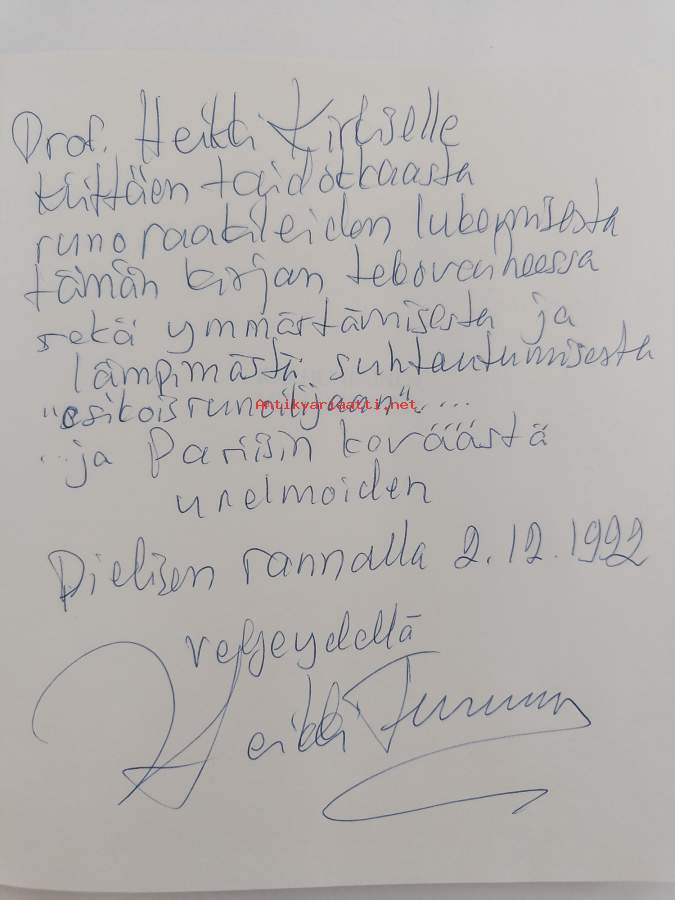 Prof. Heikki Kirkiselle
kiittäen taidokkaasta
runoraakileiden lukemisesta
tämän kirjan tekovaiheessa
sekä ymmärtämisestä ja
lämpimästä suhtautumisesta
"esikoisrunoilijaan"....
Antikvariaatti.net
...ja Pariisin kovääästä
unelmoiden
Pielisen rannalla 2.12.1992
veljeydellä
Heikki